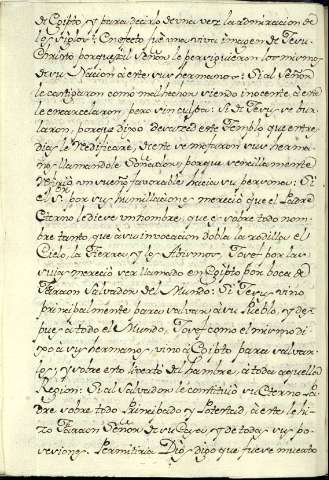 de Egipto, y para decirlo de una vez la admiracion de
los siglos: En efecto fue una viva imagen de Jesu-
Christo porque si al Señor le persiguieron los mismos
de su Nacion à este sus hermanos: Si al Señor
le castigaron como malhechor siendo inocente, à este
le encarcelaron, pero sin culpa: Si de Jesus se bur
laron, porque dixo destruid este Templo, que en tres
dias le reedificaré, de este se mofaron sus herma-
nos llamandole Soñador, porque sencillamente
un sueño favorable hacia su persona: Si
el S. por sus humillaciones mereciò que el Padre
Eterno le diese un nombre, que es sobre todo nom-
bre tanto, que à su invocacion dobla la rodilla el
Cielo, la Tierra, y los Abismos, Josef por las
suias mereciò ser llamado en Egipto por boca de
Faraon Salvador del Mundo: Si Jesus vino
principalmente para salvar à su Pueblo, y des-
pues à todo el Mundo, Josef como el mismo di-
xo à sus hermanos, vino à Egipto para salvar-
los, y sobre esto libertò del hambre à toda aquella
Region: Si al Salvador le constituiò su Eterno Pa
dre sobre todo Principado y Potestad, à este le hi-
zo Faraon Señor de su Casa, y de todas sus po-
sesiones. Permitiria Dios, digo que fuese muerto